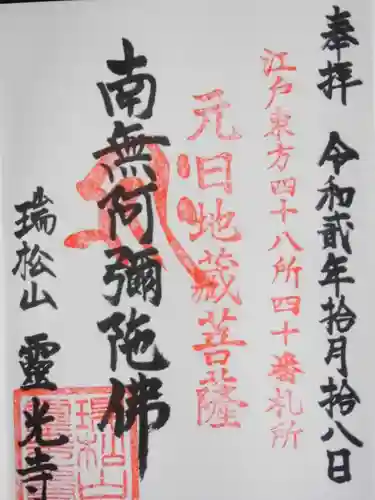 奉拝 令和貳年拾月拾八日
江戸東方四十八所四十番札所
元旦地蔵菩薩
南無阿彌陀佛
瑞松山 靈光寺